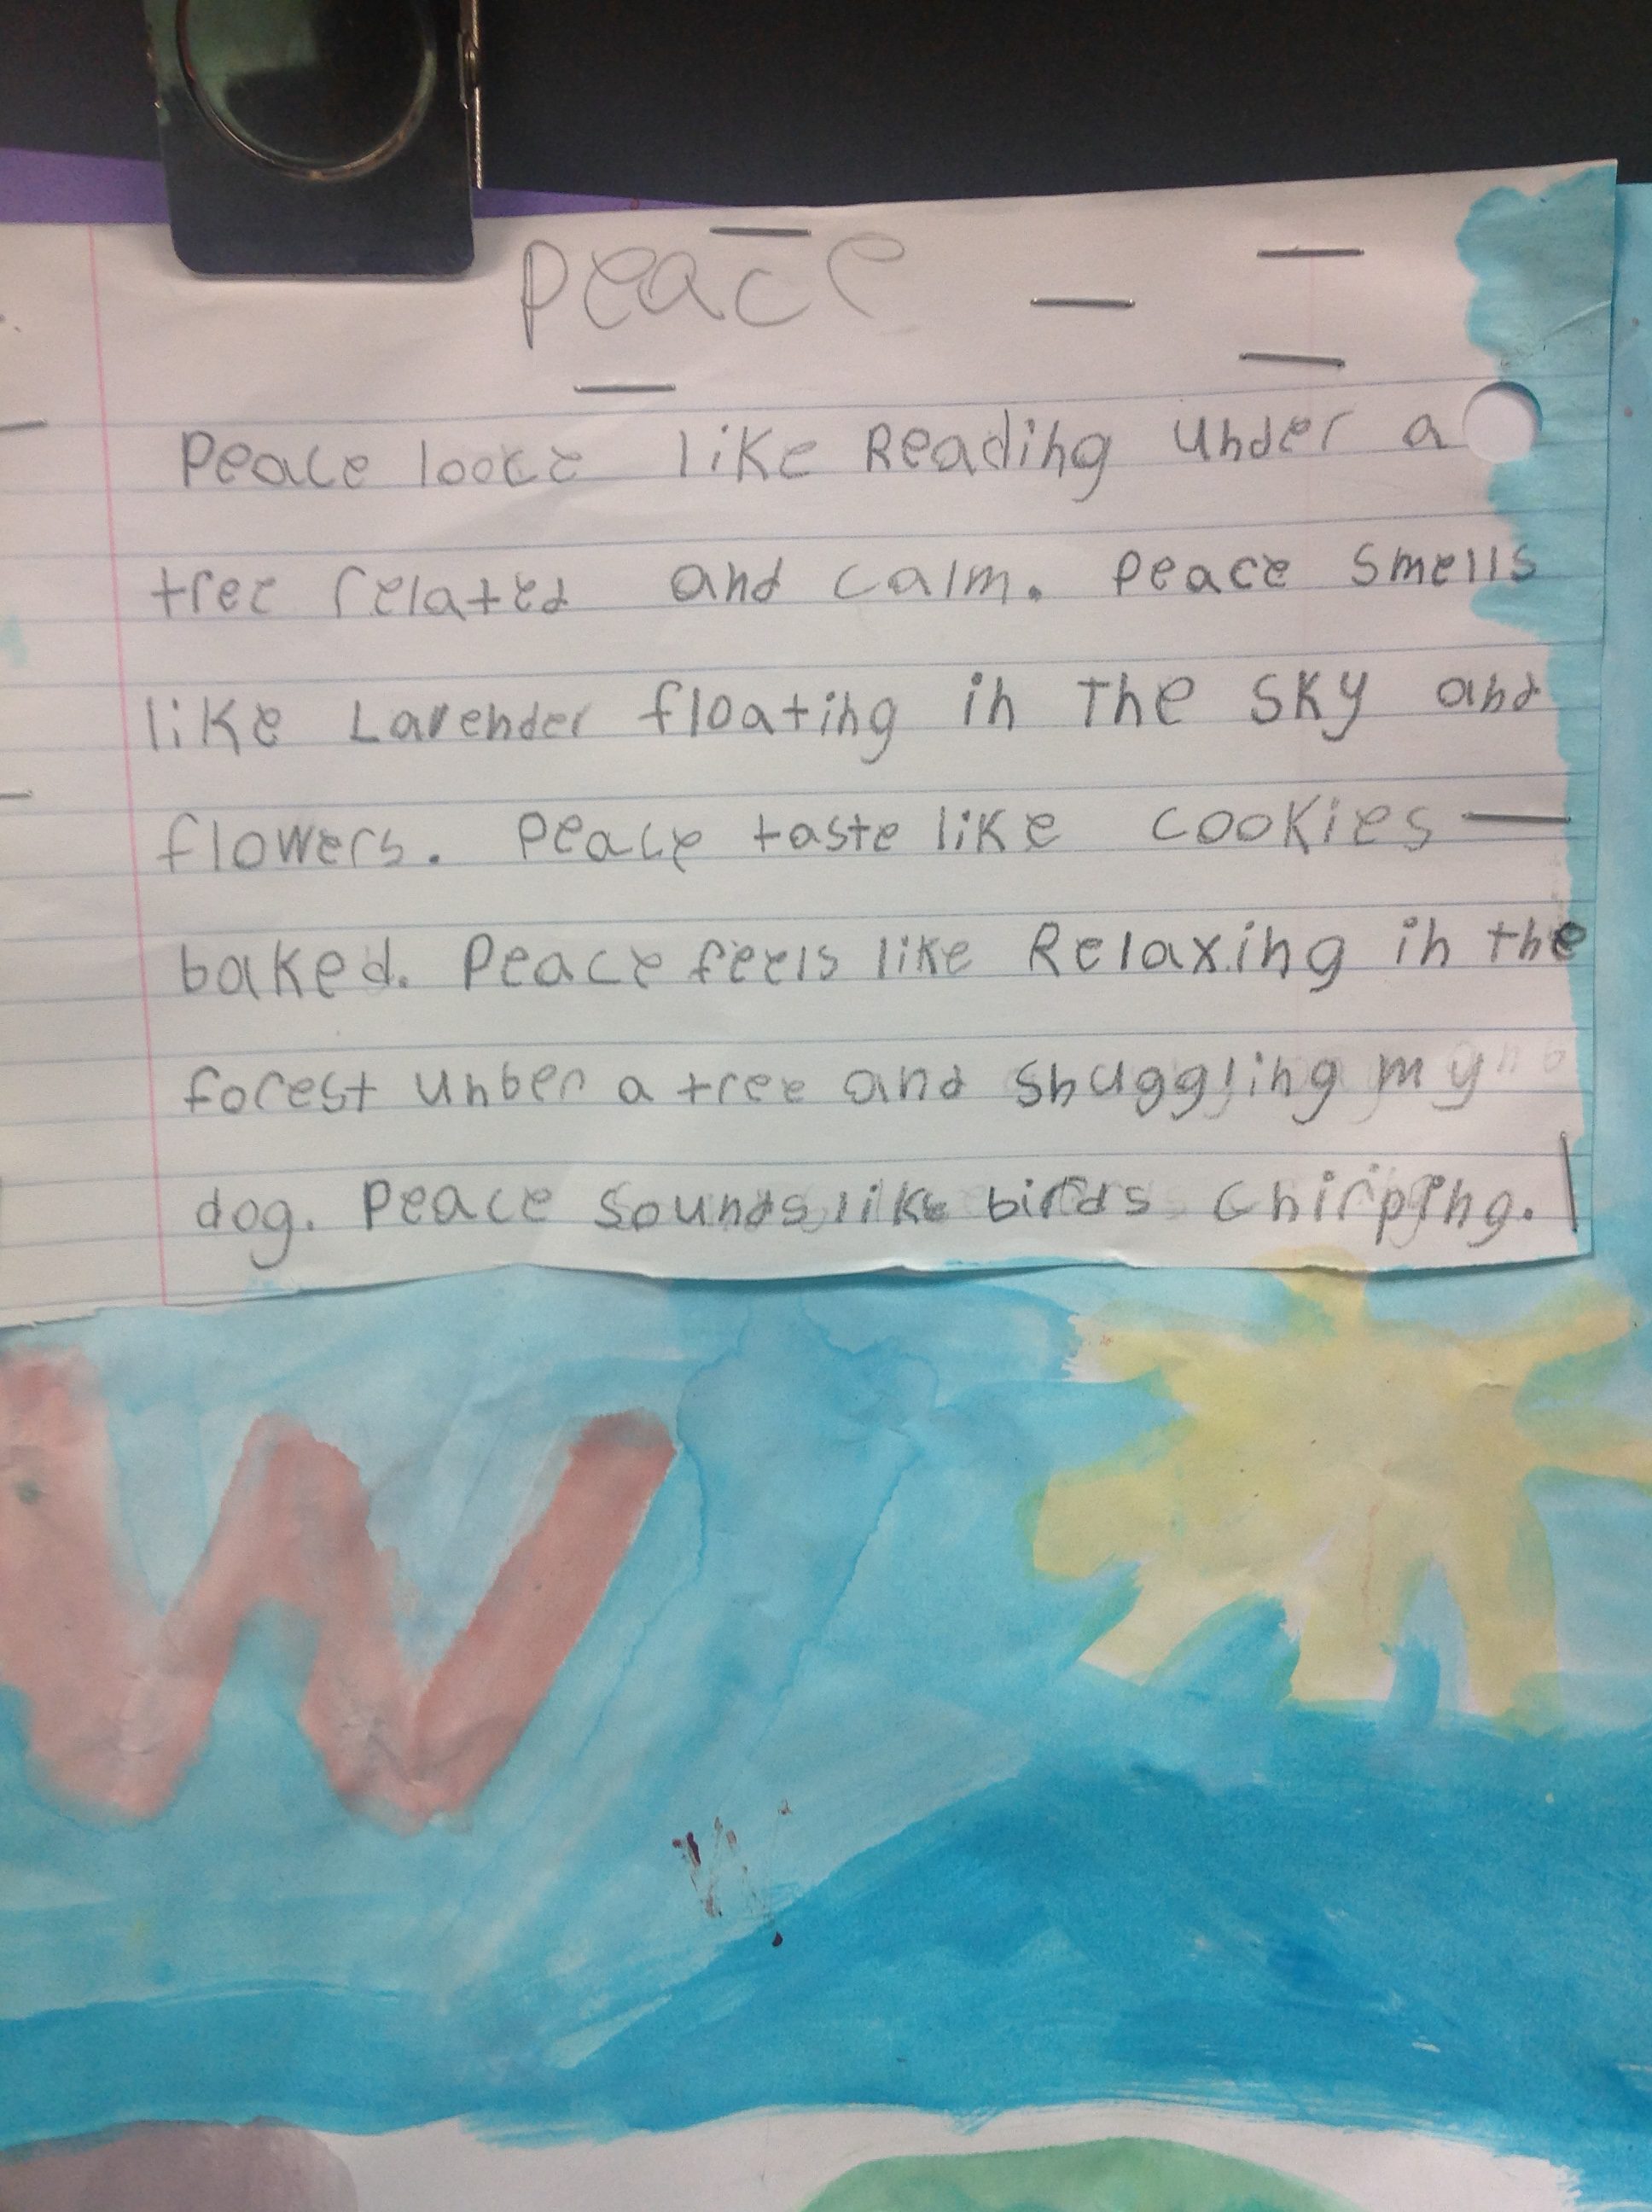 Peace
Peace looke like Reading under a
tree related and calm. Peace smells
like Lavender floating in the sky and
flowers. Peace taste like cookies —
baked. Peace feels like Relaxing in the
forest unber a tree and snuggling my
dog. Peace sounds like birds chirping.
W